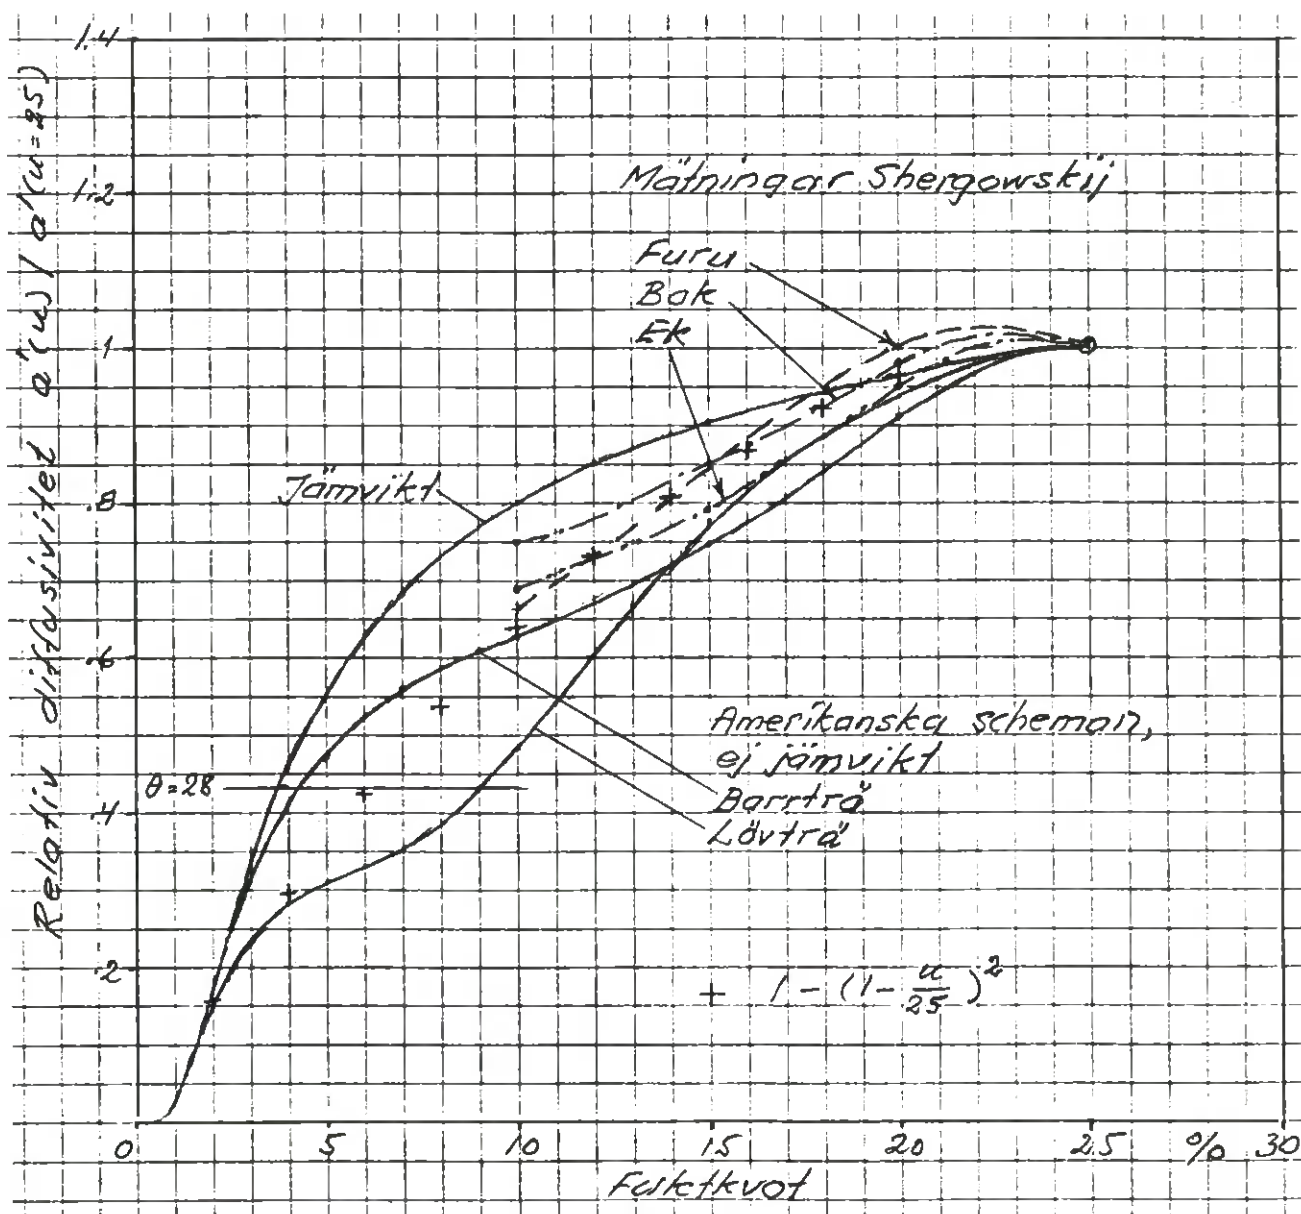 Relativ diffusivitet a'(u) / a'(u=25)
1.4
1.2
1
.8
.6
.4
.2
Mätningar Shergowskij
Furu
Bok
Ek
Jämvikt
θ=28
Amerikanska scheman,
ej jämvikt
Barrträ
Lövträ
+ 1 - (1 - u/25)^2
0 5 10 15 20 25 % 30
Fuktkvot